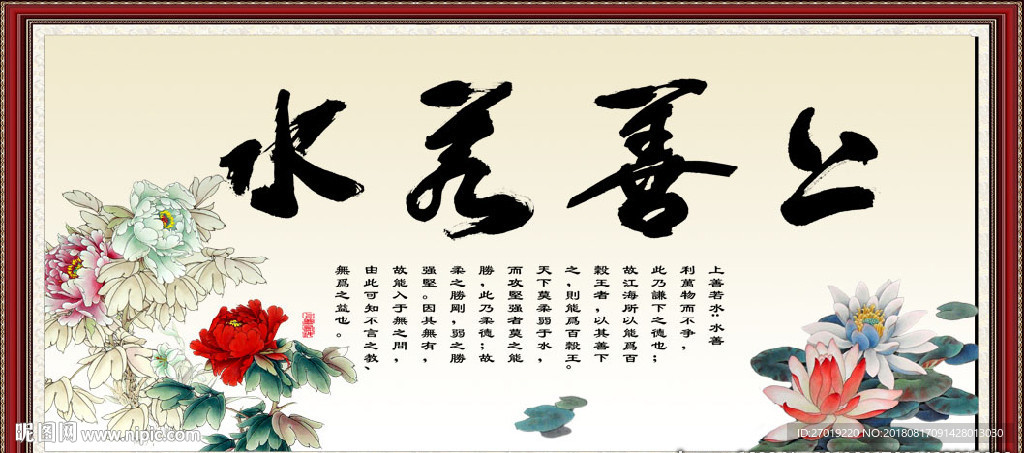 上善若水
上善若水"水善
利萬物而不争，
此乃謙下之德也；
故江海所以能爲百
穀王者，以其善下
之，則能爲百穀王。
天下莫柔弱于水，
而攻堅强者莫之能
勝，此乃柔德；故
柔之勝剛，弱之勝
强堅。因其無有，
故能入于無之間，
由此可知不言之教、
無爲之益也。
昵图网 www.nipic.com
ID:27019220 NO:20180817091428013030